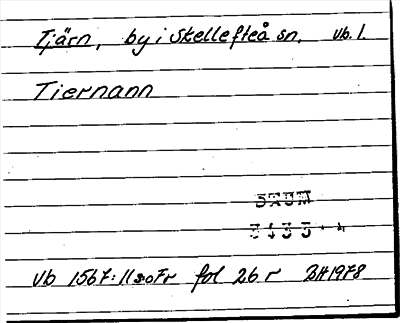 Tjärn, by i Skellefteå sn. vb. l.
Tiernann
vb 1567: 11 fol 26 r BH 1978